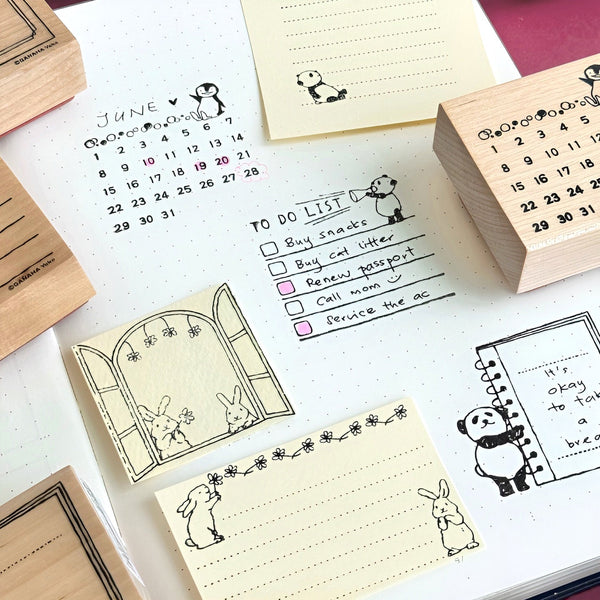 ©OANANA Yoko
JUNE ♥
1 2 3 4 5 6 7
8 9 10 11 12 13 14
15 16 17 18 19 20 21
22 23 24 25 26 27 28
29 30 31
TO DO LIST
Buy snacks
Buy cat litter
Renew passport
Call mom
Service the ac
1 2 3 4 5
8 9 10 11 12
15 16 17 18
22 23 24 25
29 30 31
It's
okay
to tak
a
brea